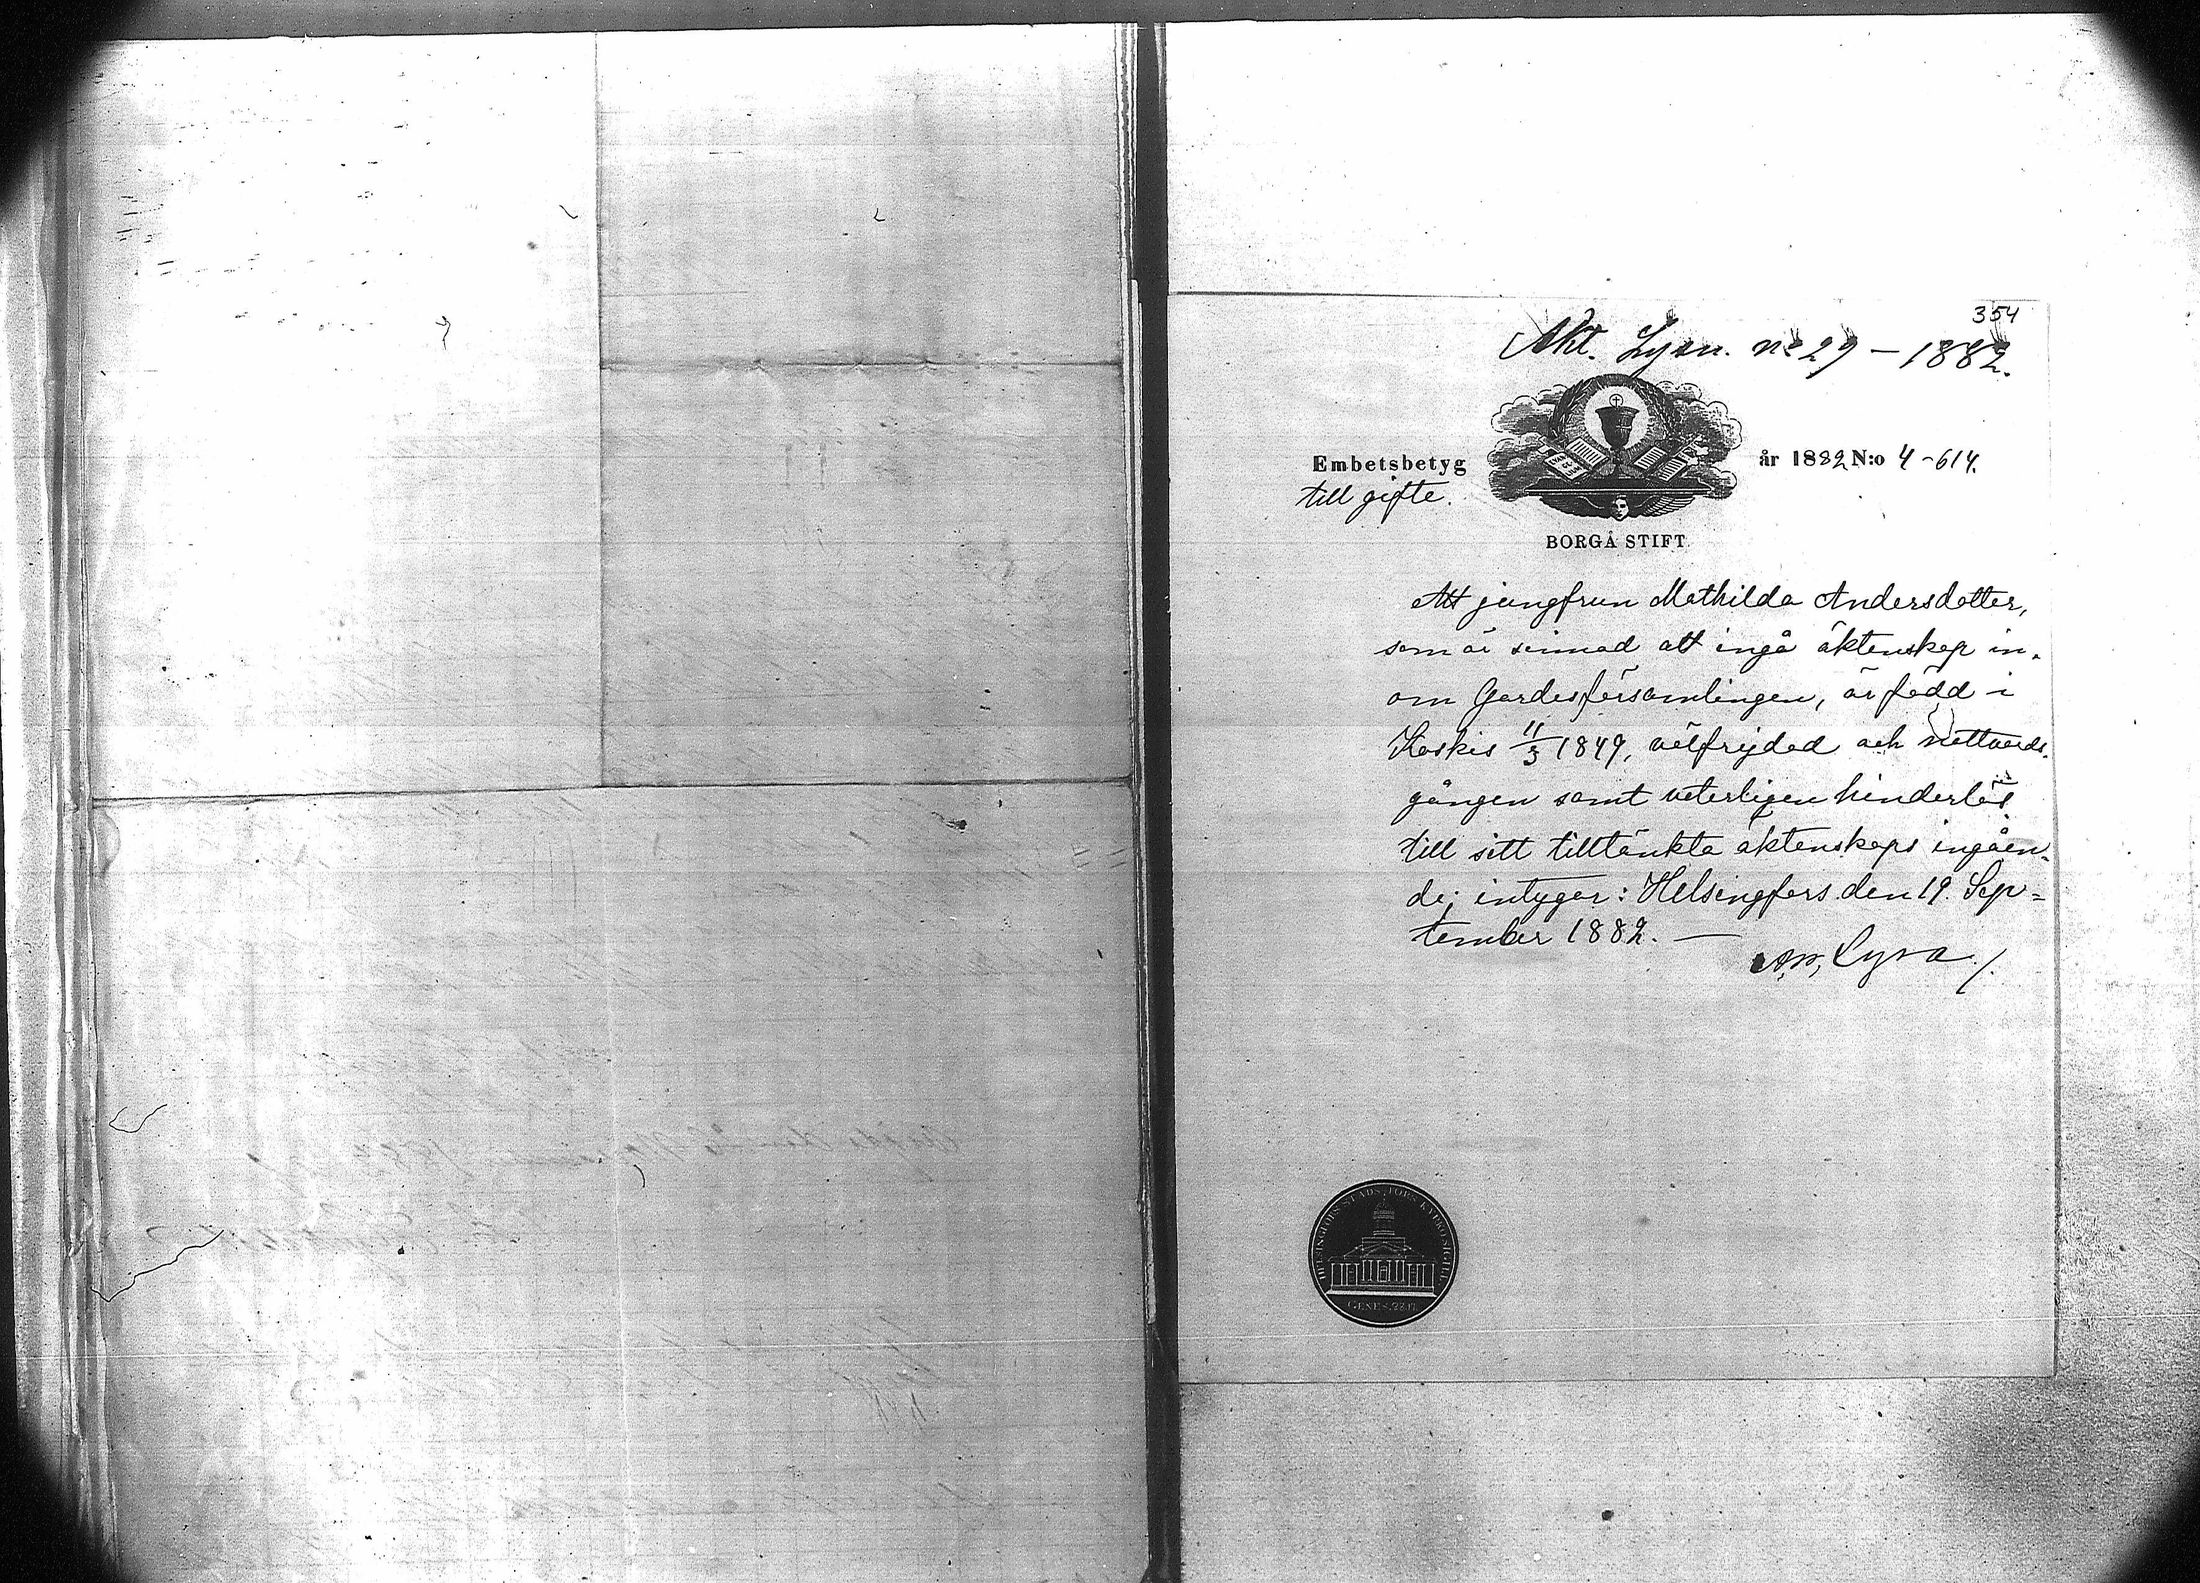 354
Akt. Lysn. no 29 – 1882.
Embetsbetyg
år 1882 N:o 4-614.
till gifte.
BORGÅ STIFT
Att jungfrun Mathilda Andersdotter,
som är sinnad att ingå äktenskap in-
om Gardesförsamlingen, är född i
Koskis 11/3 1849, välfrejdad och nattvards-
gången samt veterligen hinderlös
till sitt tilltänkta äktenskaps ingåen-
de; intygar: Helsingfors den 19. Sep=
tember 1882. —
Lyra /.
HELSINGFORS STADS FÖRS. KYRKOSIGILL
GENES. 28.17.